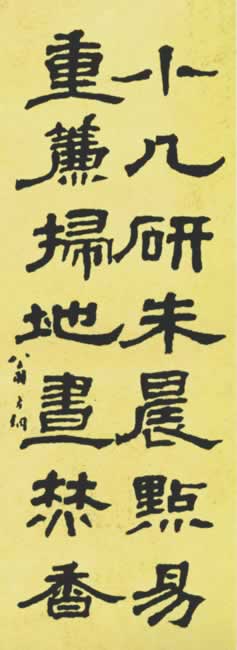 小几研朱晨點易
重簾掃地晝焚香
翁方綱